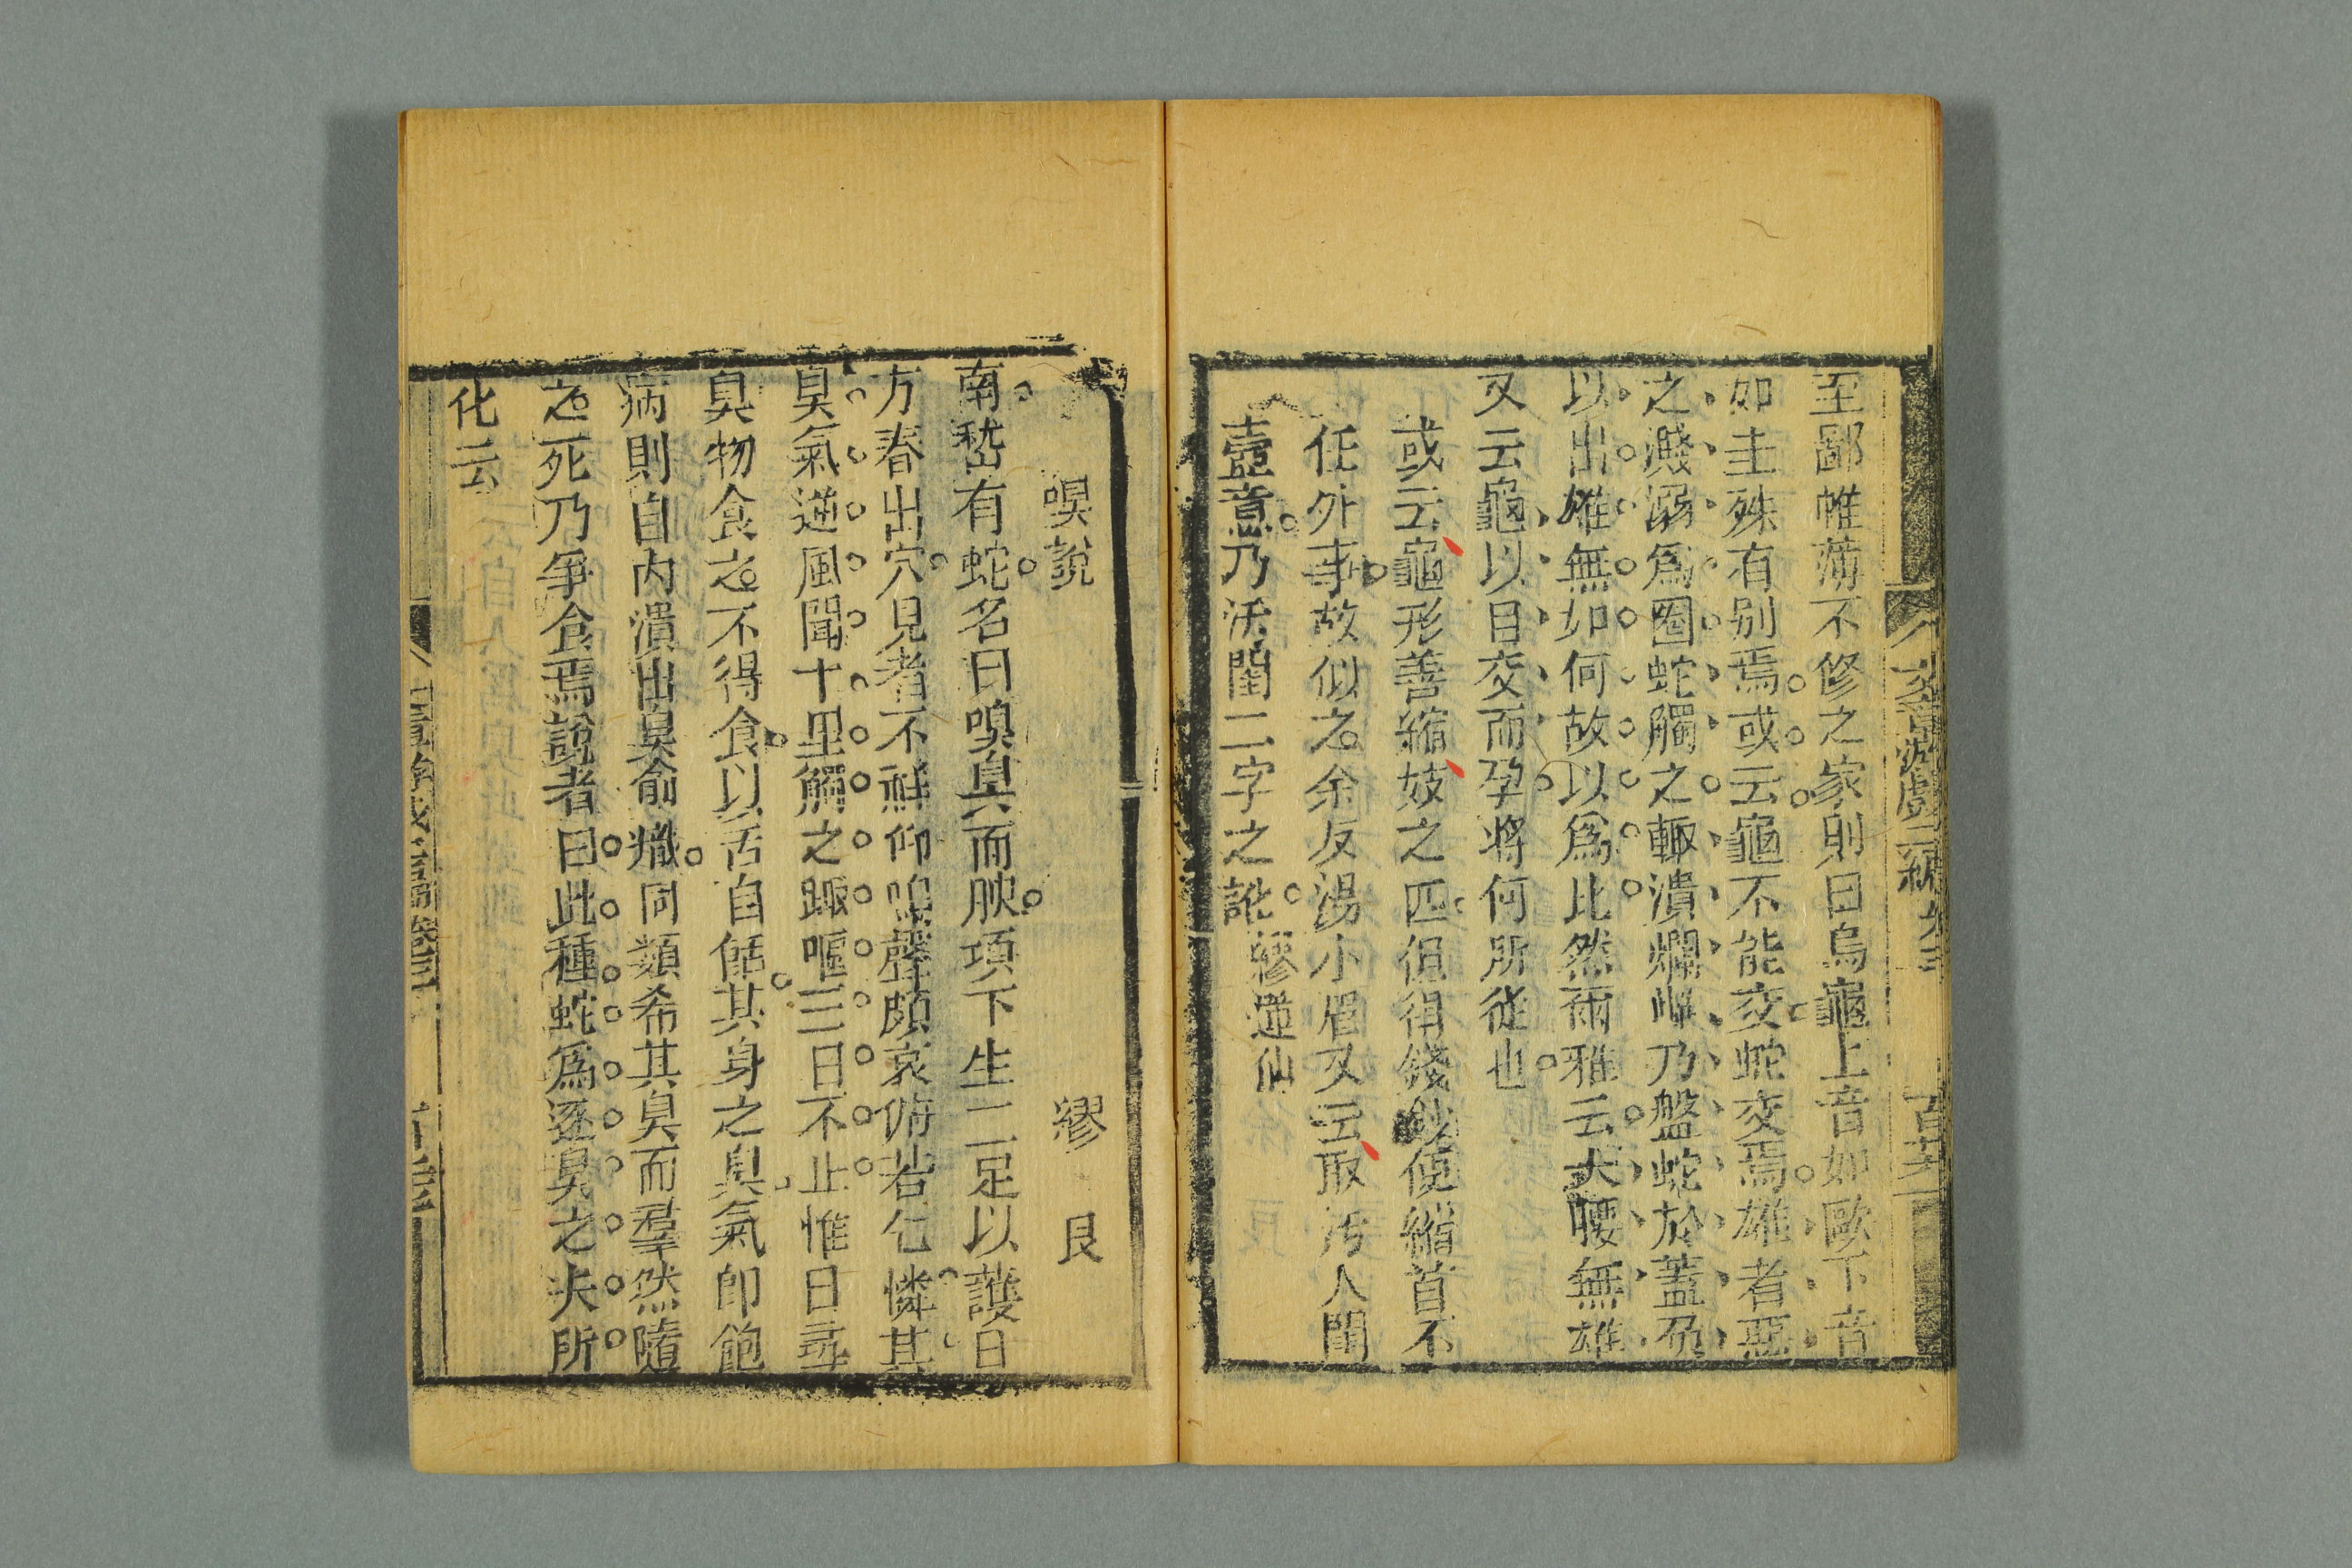 文章游戲二編 卷三 百六
至鄙帷薄不修之家則曰烏龜上音如歐下音
如圭殊有别焉或云龜不能交蛇交焉雄者惡
之濺溺爲圈蛇觸之輙潰爛雌乃盤蛇於蓋孕
以出雄無如何故以爲比然爾雅云大腰無雄
又云龜以目交而孕將何所從也
或云龜形善縮妓之匹但得錢鈔便縮首不
任外事故似之余友湯小眉又云取汚人閨
壼意乃汚閨二字之訛 繆蓮仙
嗅說 繆 艮
南嵇有蛇名曰嗅臭而腴項下生二足以護日
方春出穴見者不祥仰鳴聲頗哀俯若乞憐其
臭氣逆風聞十里觸之踙嘔三日不止惟日尋
臭物食之不得食以舌自餂其身之臭氣卽飽
病則自内潰出臭愈熾同類希其臭而羣然隨
之死乃爭食焉說者曰此種蛇爲逐臭之夫所
化云